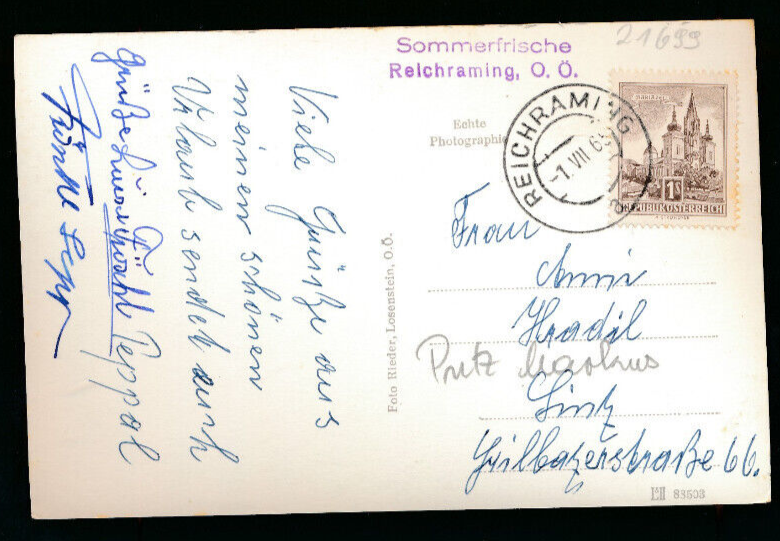 21699
Sommerfrische
Reichraming, O. Ö.
Echte
Photographie
REICHRAMING
-1.VII 65
MARIAZELL
1S
REPUBLIK ÖSTERREICH
Viele Grüße aus
meinem schönen
Urlaub sendet euch
Peppal
Grüße
Foto Rieder, Losenstein, O.Ö.
Frau
Anni
Hradil
Putz Markus
Linz
Grillbazerstraße 66.
83503